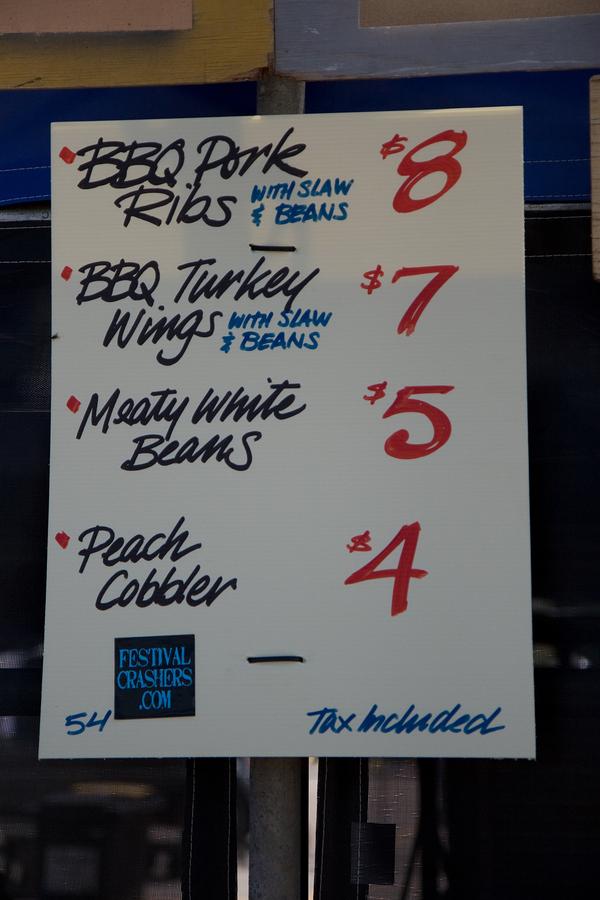 BBQ Pork $8
Ribs WITH SLAW
& BEANS
BBQ Turkey $7
Wings WITH SLAW
& BEANS
Meaty White $5
Beans
Peach $4
Cobbler
FESTIVAL
CRASHERS
.COM
54 Tax Included